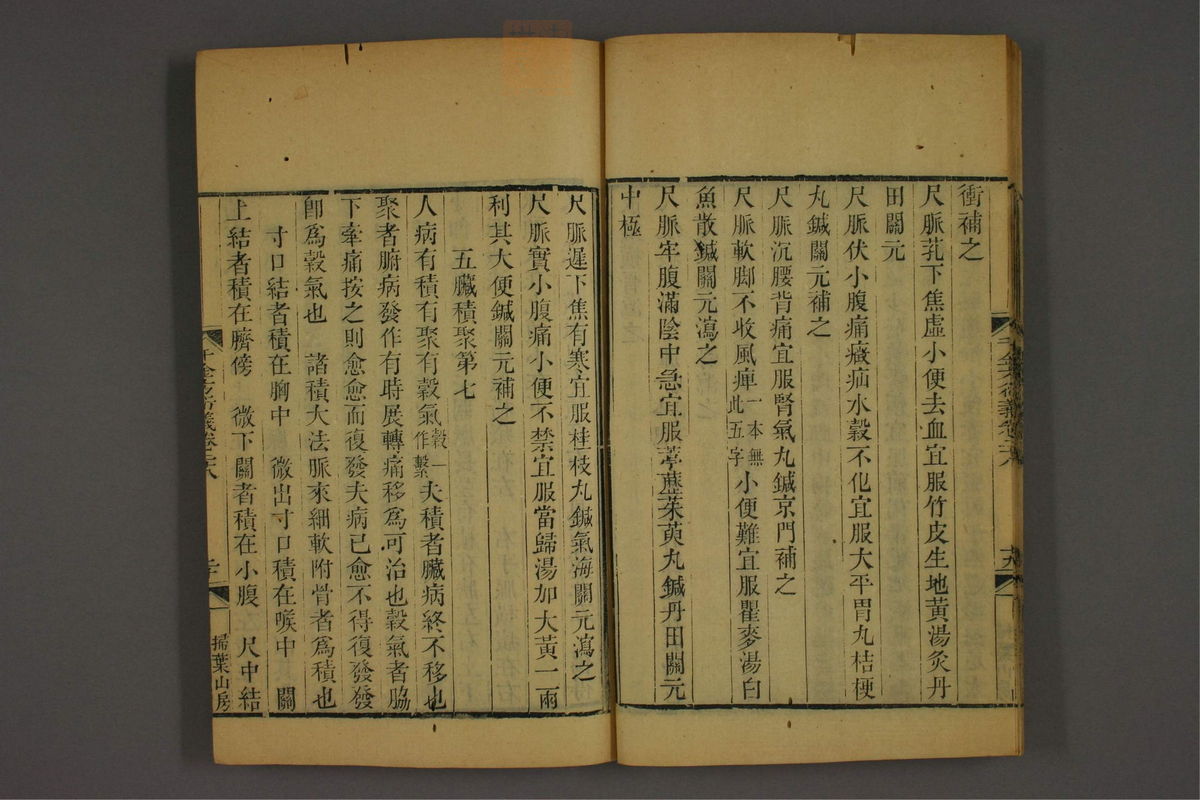 衝補之
尺脈芤下焦虛小便去血宜服竹皮生地黃湯灸丹
田關元
尺脈伏小腹痛癥疝水穀不化宜服大平胃丸桔梗
丸鍼關元補之
尺脈沉腰背痛宜服腎氣丸鍼京門補之
尺脈軟脚不收風痺一本無此五字小便難宜服瞿麥湯白
魚散鍼關元瀉之
尺脈牢腹滿陰中急宜服葶藶茱萸丸鍼丹田關元
中極
尺脈遲下焦有寒宜服桂枝丸鍼氣海關元瀉之
尺脈實小腹痛小便不禁宜服當歸湯加大黃一兩
利其大便鍼關元補之
五臟積聚第七
人病有積有聚有穀氣穀一作繫夫積者臟病終不移也
聚者腑病發作有時展轉痛移為可治也穀氣者脇
下牽痛按之則愈愈而復發夫病已愈不得復發發
卽為穀氣也 諸積大法脈來細軟附骨者為積也
寸口結者積在胸中 微出寸口積在喉中 關
上結者積在臍傍 微下關者積在小腹 尺中結
千金方衍義卷二十八
掃葉山房